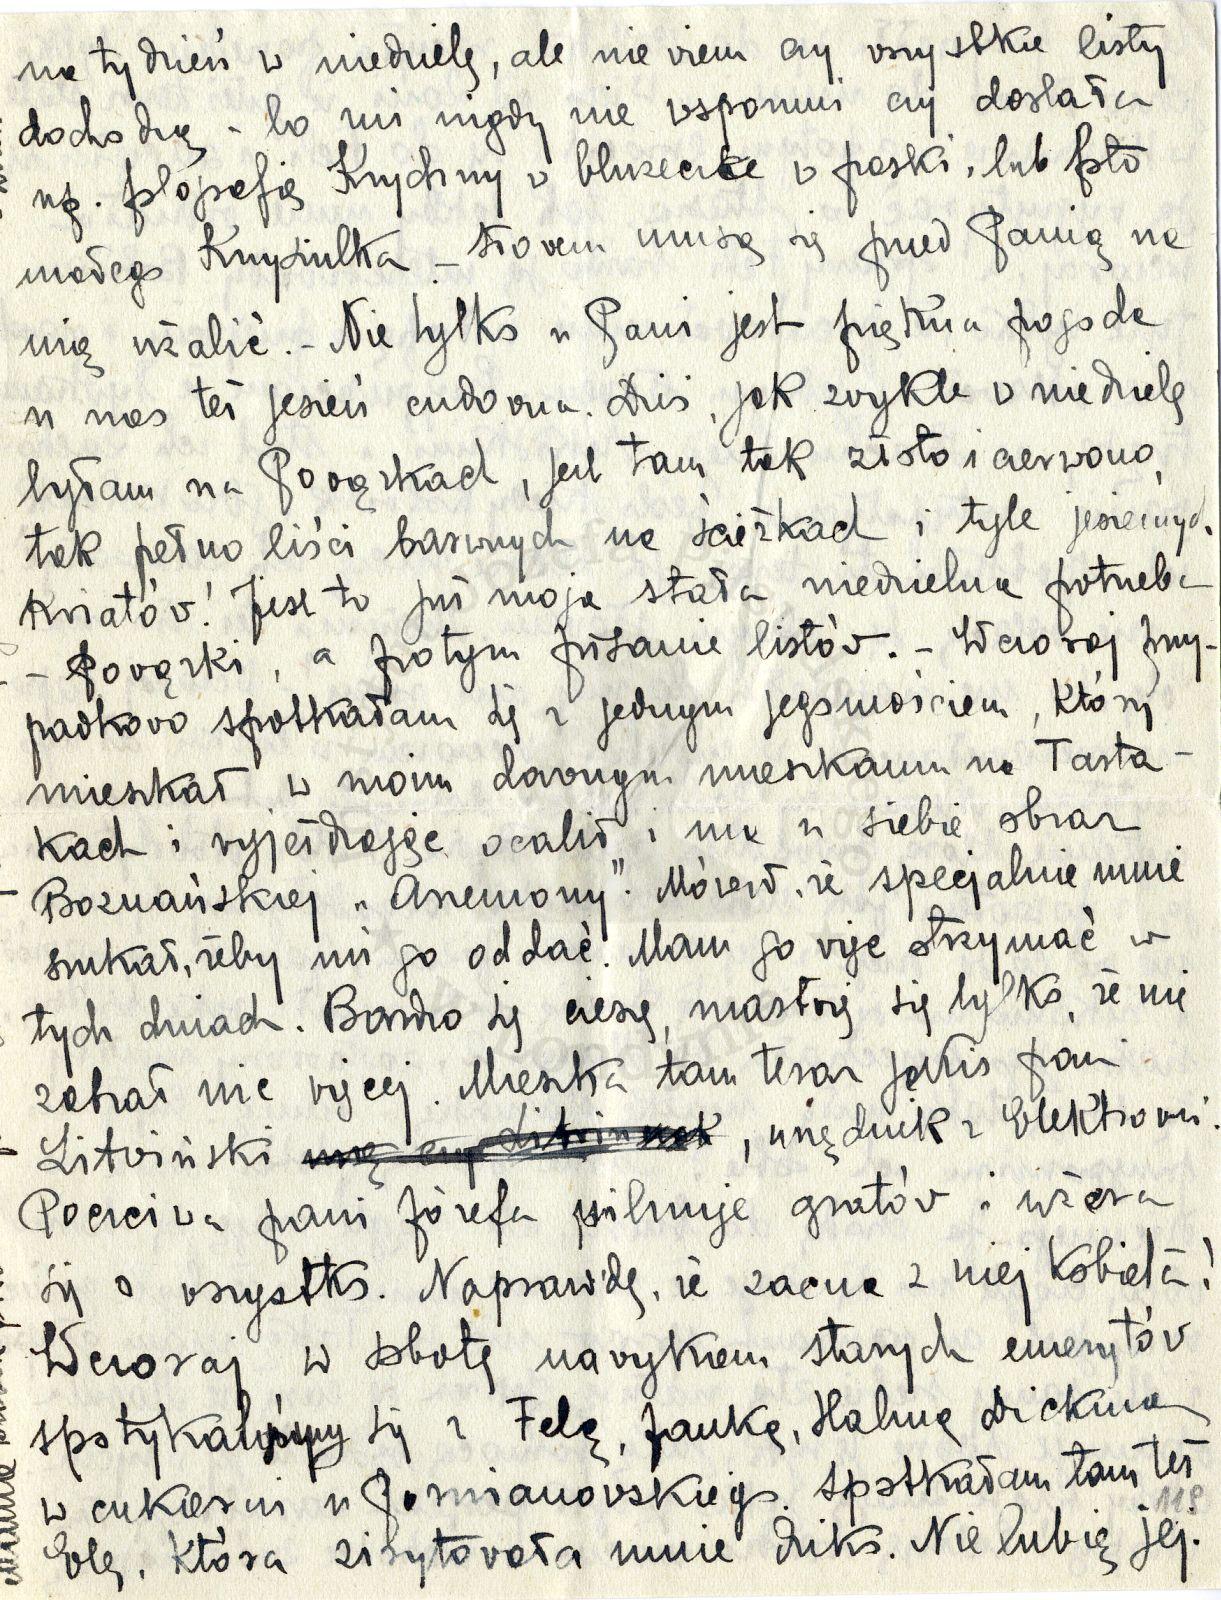 na tydzień w niedzielę, ale nie wiem czy wszystkie listy
dochodzą - bo mi nigdy nie wspomni czy dostała
np. fotografię Krychny w bluzeczce w paski, lub foto
małego Krzysiulka - słowem muszę się przed Panią na
nią użalić. - Nie tylko u Pani jest piękna pogoda
u nas też jesień cudowna. Dziś, jak zwykle w niedzielę
byłam na Powązkach, jest tam tak złoto i czerwono,
tak pełno liści barwnych na ścieżkach i tyle jesiennych
kwiatów! Jest to już moja stała niedzielna potrzeba
- Powązki, a potym pisanie listów. - Wczoraj przy-
padkowo spotkałam się z jednym jegomościem, który
mieszkał w moim dawnym mieszkaniu na Fasta-
kach i wyjeżdżając ocalił i ma u siebie obraz
Boznańskiej „Anemony". Mówił, że specjalnie mnie
szukał, żeby mi go oddać. Mam go więc otrzymać w
tych dniach. Bardzo się cieszę, martwię się tylko, że nie
zabrał nic więcej. Mieszka tam teraz jakiś pan
Litwiński, urzędnik z Elektrowni.
Poczciwa pani Józefa pilnuje gratów i użera
się o wszystko. Naprawdę, że zacna z niej kobieta!
Wczoraj w sobotę nawykiem starych emerytów
spotykaliśmy się z Felą, Janką, Haliną Dickman
w cukierni u Pomianowskiego. Spotkałam tam też
Elę, która zirytowała mnie dziko. Nie lubię jej.
118